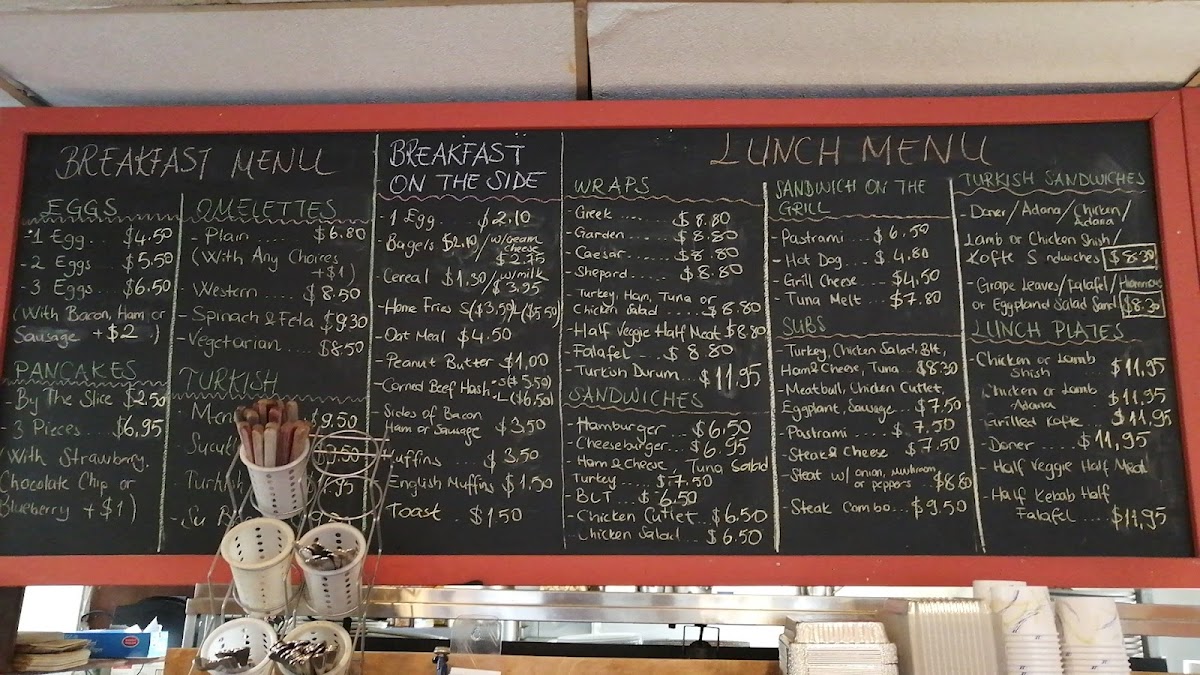 BREAKFAST MENU
EGGS
- 1 Egg.... $4.50
- 2 Eggs.... $5.50
- 3 Eggs.... $6.50
(With Bacon, Ham or
Sausage +$2 )
PANCAKES
- By The Slice $2.50
- 3 Pieces.... $6.95
With Strawberry,
Chocolate Chip or
Blueberry +$1)
OMELETTES
- Plain..... $6.80
(With Any Choices
+$1)
- Western..... $8.50
- Spinach & Feta $9.30
- Vegetarian.... $8.50
TURKISH
- $9.50
BREAKFAST
ON THE SIDE
- 1 Egg.... $2.10
- Bagels $2.10 / w/cream
cheese
$2.75
- Cereal $1.30 / w/milk
$3.95
- Home Fries S($3.50) L($5.50)
- Oat Meal $4.50
- Peanut Butter $1.00
- Corned Beef Hash - S($5.50)
- L($6.50)
- Sides of Bacon
Ham or Sausage $3.50
Muffins $3.50
English Muffins $1.50
Toast .. $1.50
LUNCH MENU
WRAPS
- Greek...... $8.80
- Garden.... $8.80
- Caesar.... $8.80
- Shepard.... $8.80
- Turkey, Ham, Tuna or
Chicken Salad ..... $8.80
- Half Veggie Half Meat $8.80
- Falafel... $8.80
- Turkish Durum... $11.95
SANDWICHES
- Hamburger... $6.50
- Cheeseburger... $6.95
- Ham & Cheese, Tuna Salad
Turkey.... $7.50
- BLT... $6.50
- Chicken Cutlet.. $6.50
- Chicken Salad.. $6.50
SANDWICH ON THE
GRILL
- Pastrami.... $6.50
- Hot Dog... $4.80
- Grill Cheese... $4.50
- Tuna Melt... $7.80
SUBS
- Turkey, Chicken Salad, Blt,
Ham & Cheese, Tuna $8.30
- Meatball, Chicken Cutlet,
Eggplant, Sausage... $7.50
- Pastrami.... $7.50
- Steak & Cheese $7.50
- Steak w/ onion, mushroom
or peppers $8.80
- Steak Combo... $9.50
TURKISH SANDWICHES
- Doner/Adana/Chicken/
Adana
Lamb or Chicken Shish/
Kofte Sandwiches $8.30
- Grape Leaves/Falafel/Hummus
or Eggpland Salad Sand $8.30
LUNCH PLATES
- Chicken or Lamb
Shish $11,95
Chicken or Lamb
Adana $11,95
Grilled Kofte... $11,95
- Doner.... $11,95
- Half Veggie Half Meal
- Half Kebab Half
Falafel.... $11,95